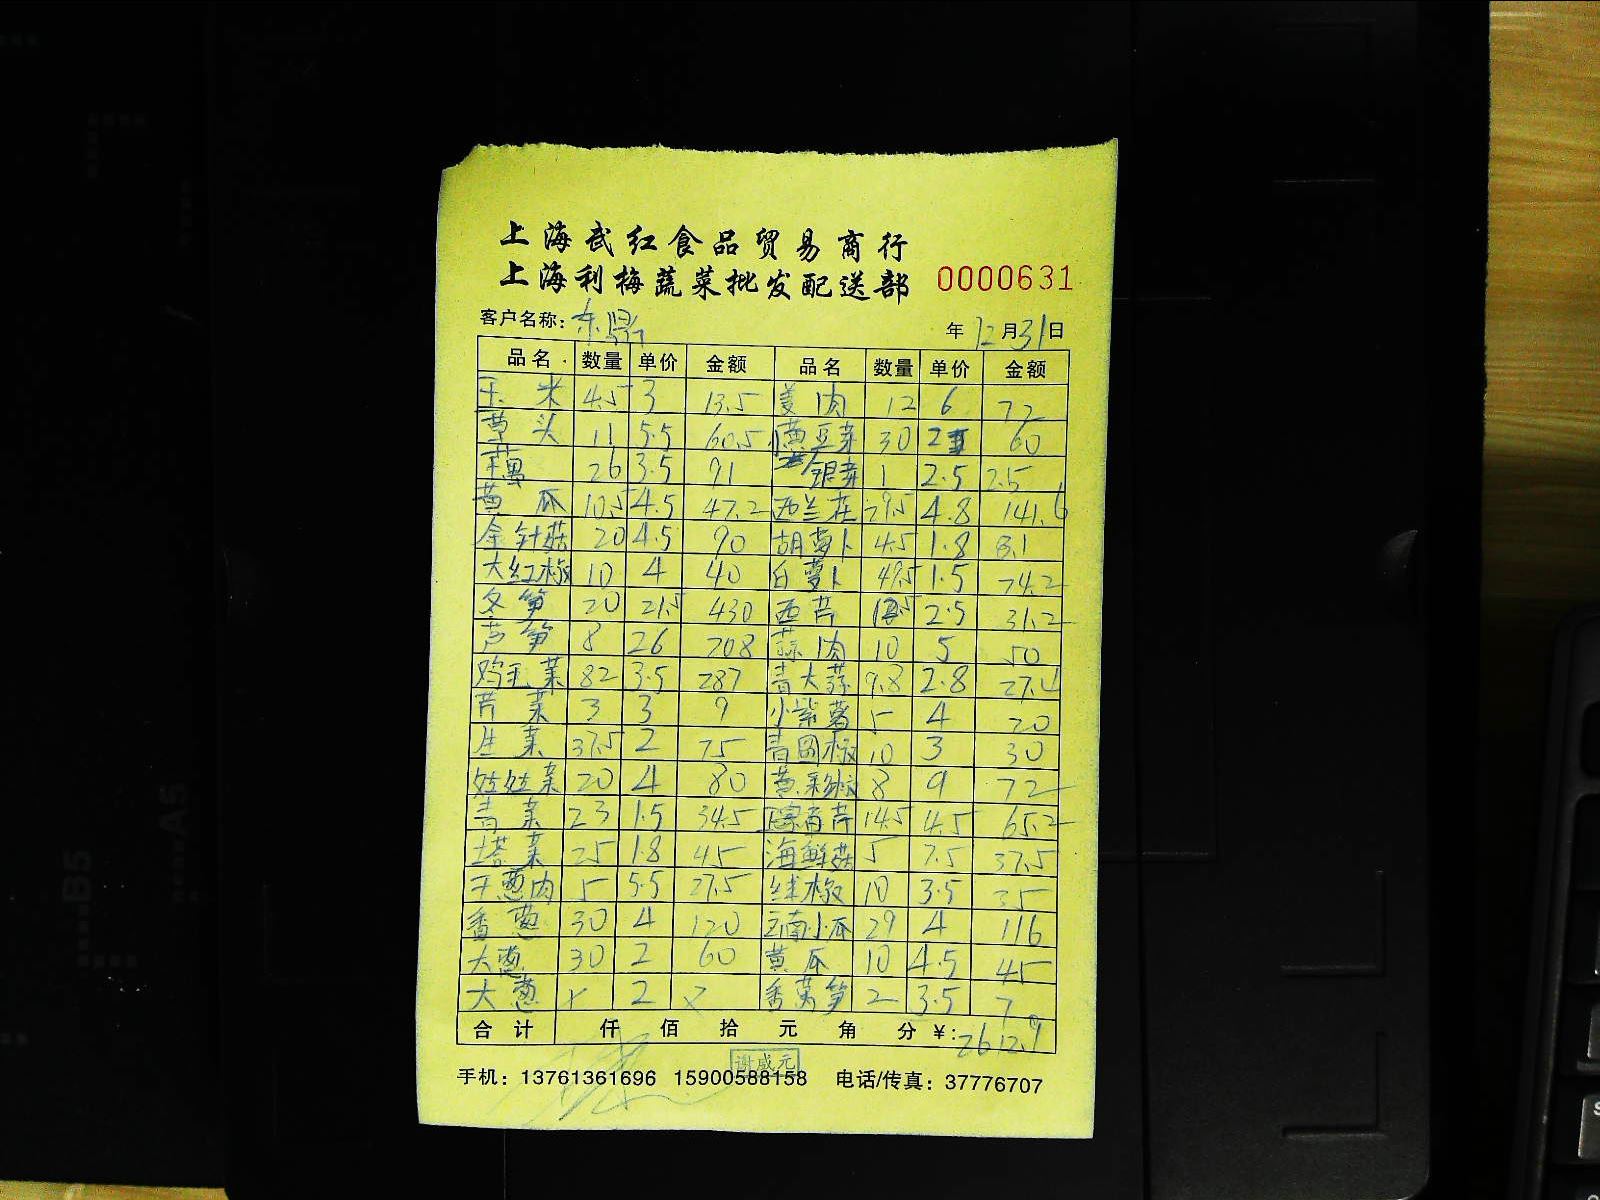 上海武红食品贸易商行
上海利梅蔬菜批发配送部 0000631
客户名称: 东 年 12 月 31 日
品名 数量 单价 金额 品名 数量 单价 金额
玉米 4.5 3 13.5 姜肉 12 6 72
草头 11 5.5 60.5 小黄豆芽 30 2 60
26 3.5 91 银芽 1 2.5 2.5
黄瓜 10.5 4.5 47.2 西兰花 29.5 4.8 141.6
金针菇 20 4.5 90 胡萝卜 4.5 1.8 8.1
大红椒 10 4 40 白萝卜 49.5 1.5 74.2
冬笋 20 21.5 430 西芹 12.5 2.5 31.2
芦笋 8 26 208 蒜肉 10 5 50
鸡毛菜 82 3.5 287 青大蒜 9.8 2.8 27.4
芹菜 3 3 9 小紫薯 5 4 20
生菜 37.5 2 75 青圆椒 10 3 30
娃娃菜 20 4 80 黄彩椒 8 9 72
青菜 23 1.5 34.5 香芹 14.5 4.5 65.2
塔菜 25 1.8 45 海鲜菇 5 7.5 37.5
干葱肉 5 5.5 27.5 红椒 10 3.5 35
香葱 30 4 120 云南小瓜 29 4 116
大葱 30 2 60 黄瓜 10 4.5 45
大葱 x 2 x 香莴笋 2 3.5 7
合计 仟 佰 拾 元 角 分 ¥: 2612.9
谢成元
手机: 13761361696 15900588158 电话/传真: 37776707